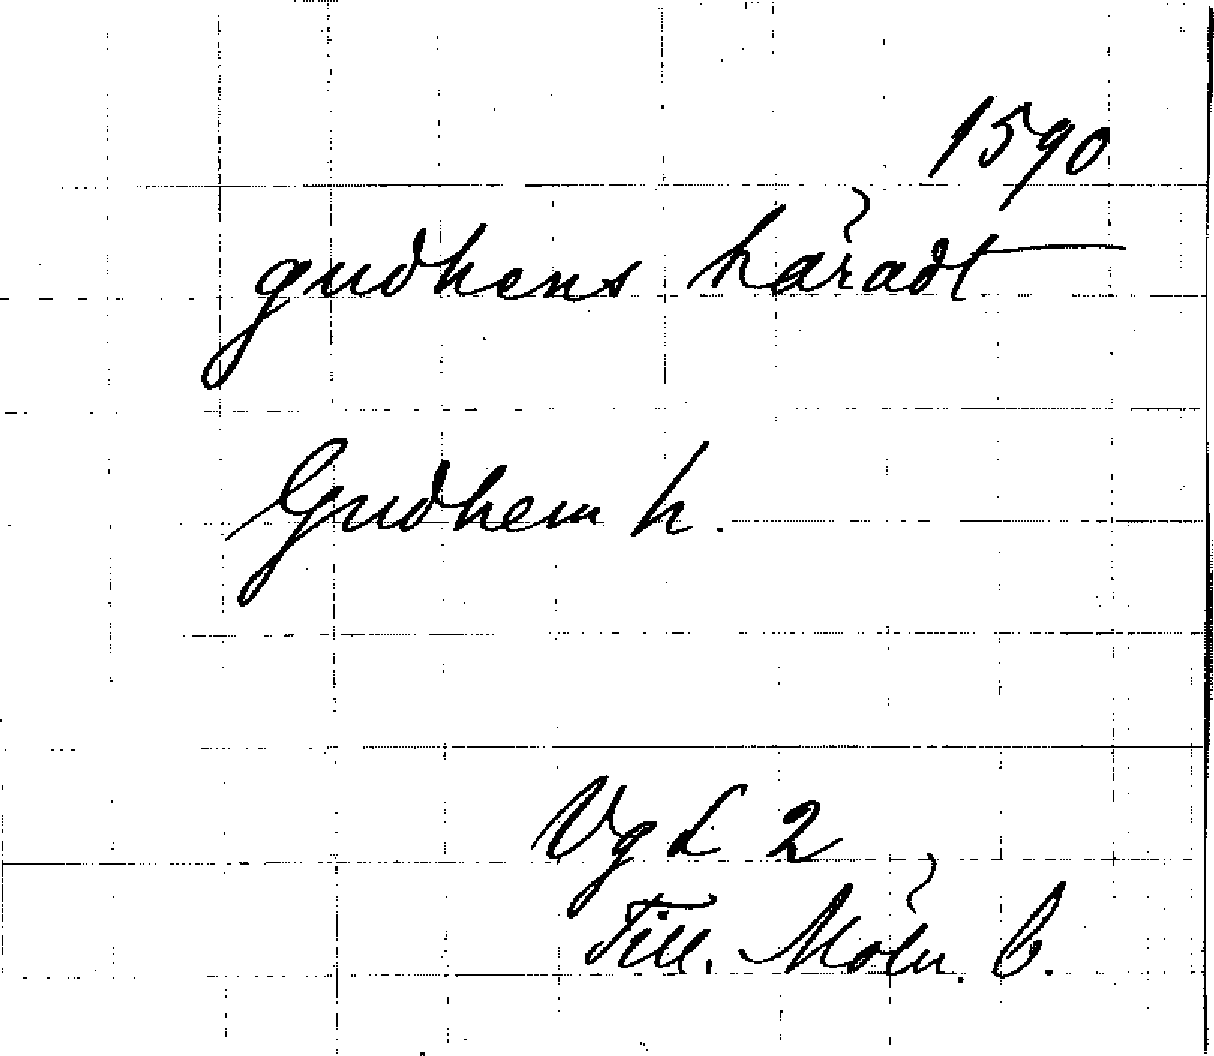 1590
gudhens häradt
Gudhem h.
Vg L 2
Till. Möln. B.